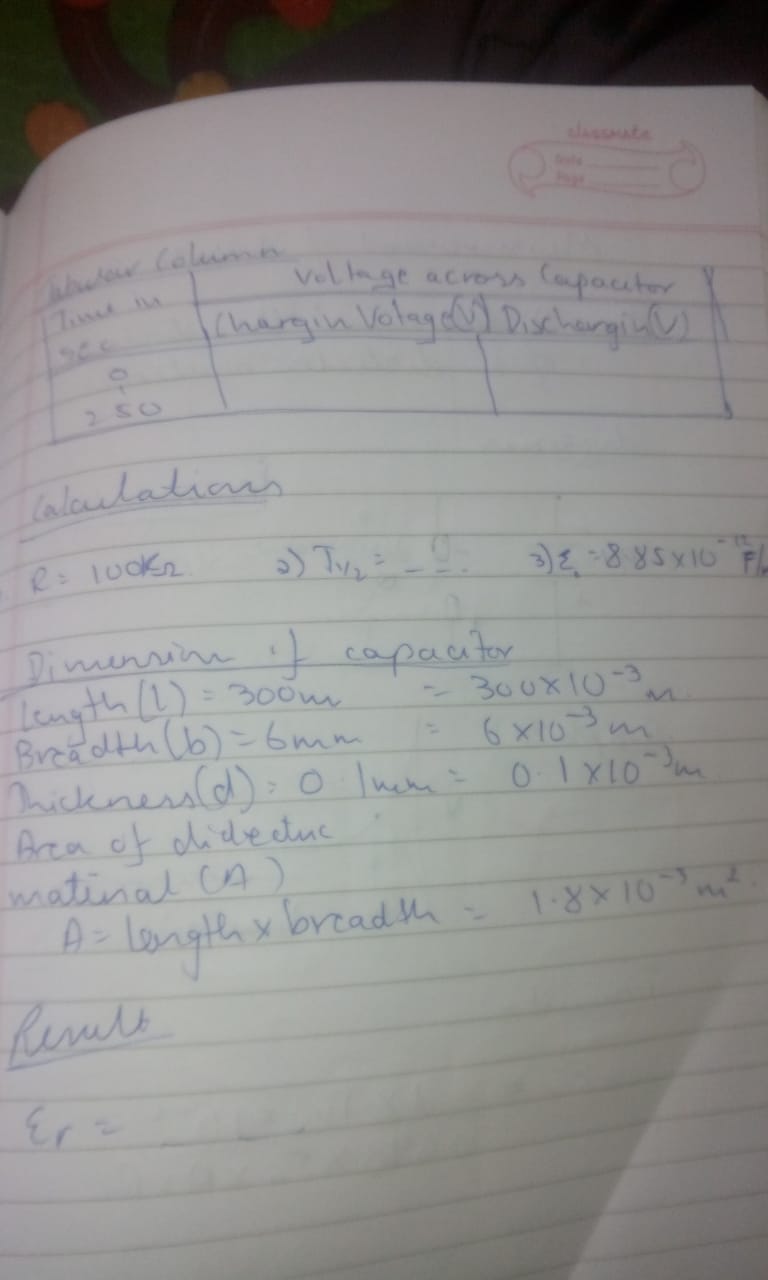 classmate
Date
Page
Tabular Column
Time in sec
Voltage across Capacitor
Chargin Votage(V) Dischargin(V)
0
250
Calculations
R = 100KΩ 2) T1/2 = _ _ . 3) ε. = 8.85 x 10^-12 F/
Dimension of capacitor
Length(l) = 300m = 300 x 10^-3 m
Breadth(b) = 6mm = 6 x 10^-3 m
Thickness(d) = 0.1mm = 0.1 x 10^-3 m
Area of didectuc
matinal (A)
A = length x breadth = 1.8 x 10^-3 m².
Result
εr = _ _